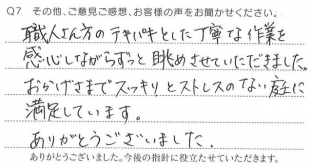 Q7 その他、ご意見ご感想、お客様の声をお聞かせください。
職人さん方のテキパキとした丁寧な作業を
感心しながらずっと眺めさせていただきました。
おかげさまでスッキリとストレスのない庭に
満足しています。
ありがとうございました.
ありがとうございました。今後の指針に役立たせていただきます。